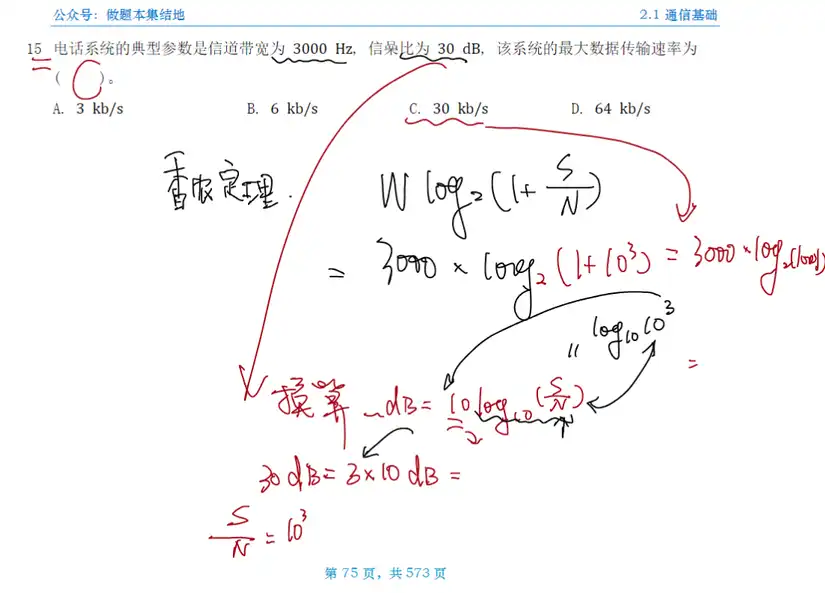 公众号：做题本集结地 2.1 通信基础
15 电话系统的典型参数是信道带宽为 3000 Hz，信噪比为 30 dB，该系统的最大数据传输速率为
( C )。
A. 3 kb/s B. 6 kb/s C. 30 kb/s D. 64 kb/s
香农定理. W log₂(1+S/N)
= 3000 × log₂(1+10³) = 3000 × log₂(1001)
" log₁₀10³
换算 dB = 10 log₁₀(S/N) =
30 dB = 3×10 dB =
S/N = 10³
第 75 页，共 573 页